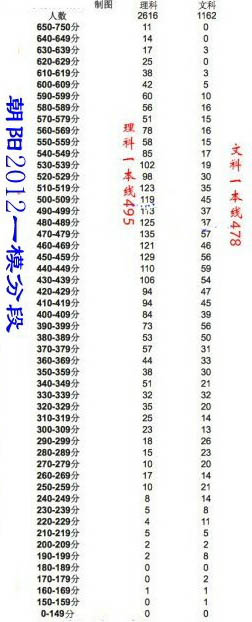 制图 理科 文科
人数 2616 1162
650-750分 11 0
640-649分 14 0
630-639分 17 3
620-629分 25 0
610-619分 38 3
600-609分 42 5
590-599分 60 10
580-589分 56 16
570-579分 51 15
560-569分 78 16
550-559分 58 15
540-549分 85 17
530-539分 102 19
520-529分 98 30
510-519分 123 35
500-509分 119 45
490-499分 37
480-489分 125 37
470-479分 135 57
460-469分 121 46
450-459分 129 56
440-449分 110 59
430-439分 106 54
420-429分 94 47
410-419分 94 45
400-409分 84 39
390-399分 73 56
380-389分 53 50
370-379分 57 31
360-369分 44 33
350-359分 38 30
340-349分 51 21
330-339分 32 32
320-329分 35 20
310-319分 25 14
300-309分 23 13
290-299分 18 26
280-289分 15 23
270-279分 10 20
260-269分 17 14
250-259分 10 21
240-249分 8 14
230-239分 5 8
220-229分 4 11
210-219分 5 5
200-209分 2 2
190-199分 2 8
180-189分 0 0
170-179分 0 2
160-169分 1 1
150-159分 0 1
0-149分 0 0
朝阳2012一模分段
理科一本线495
文科一本线478